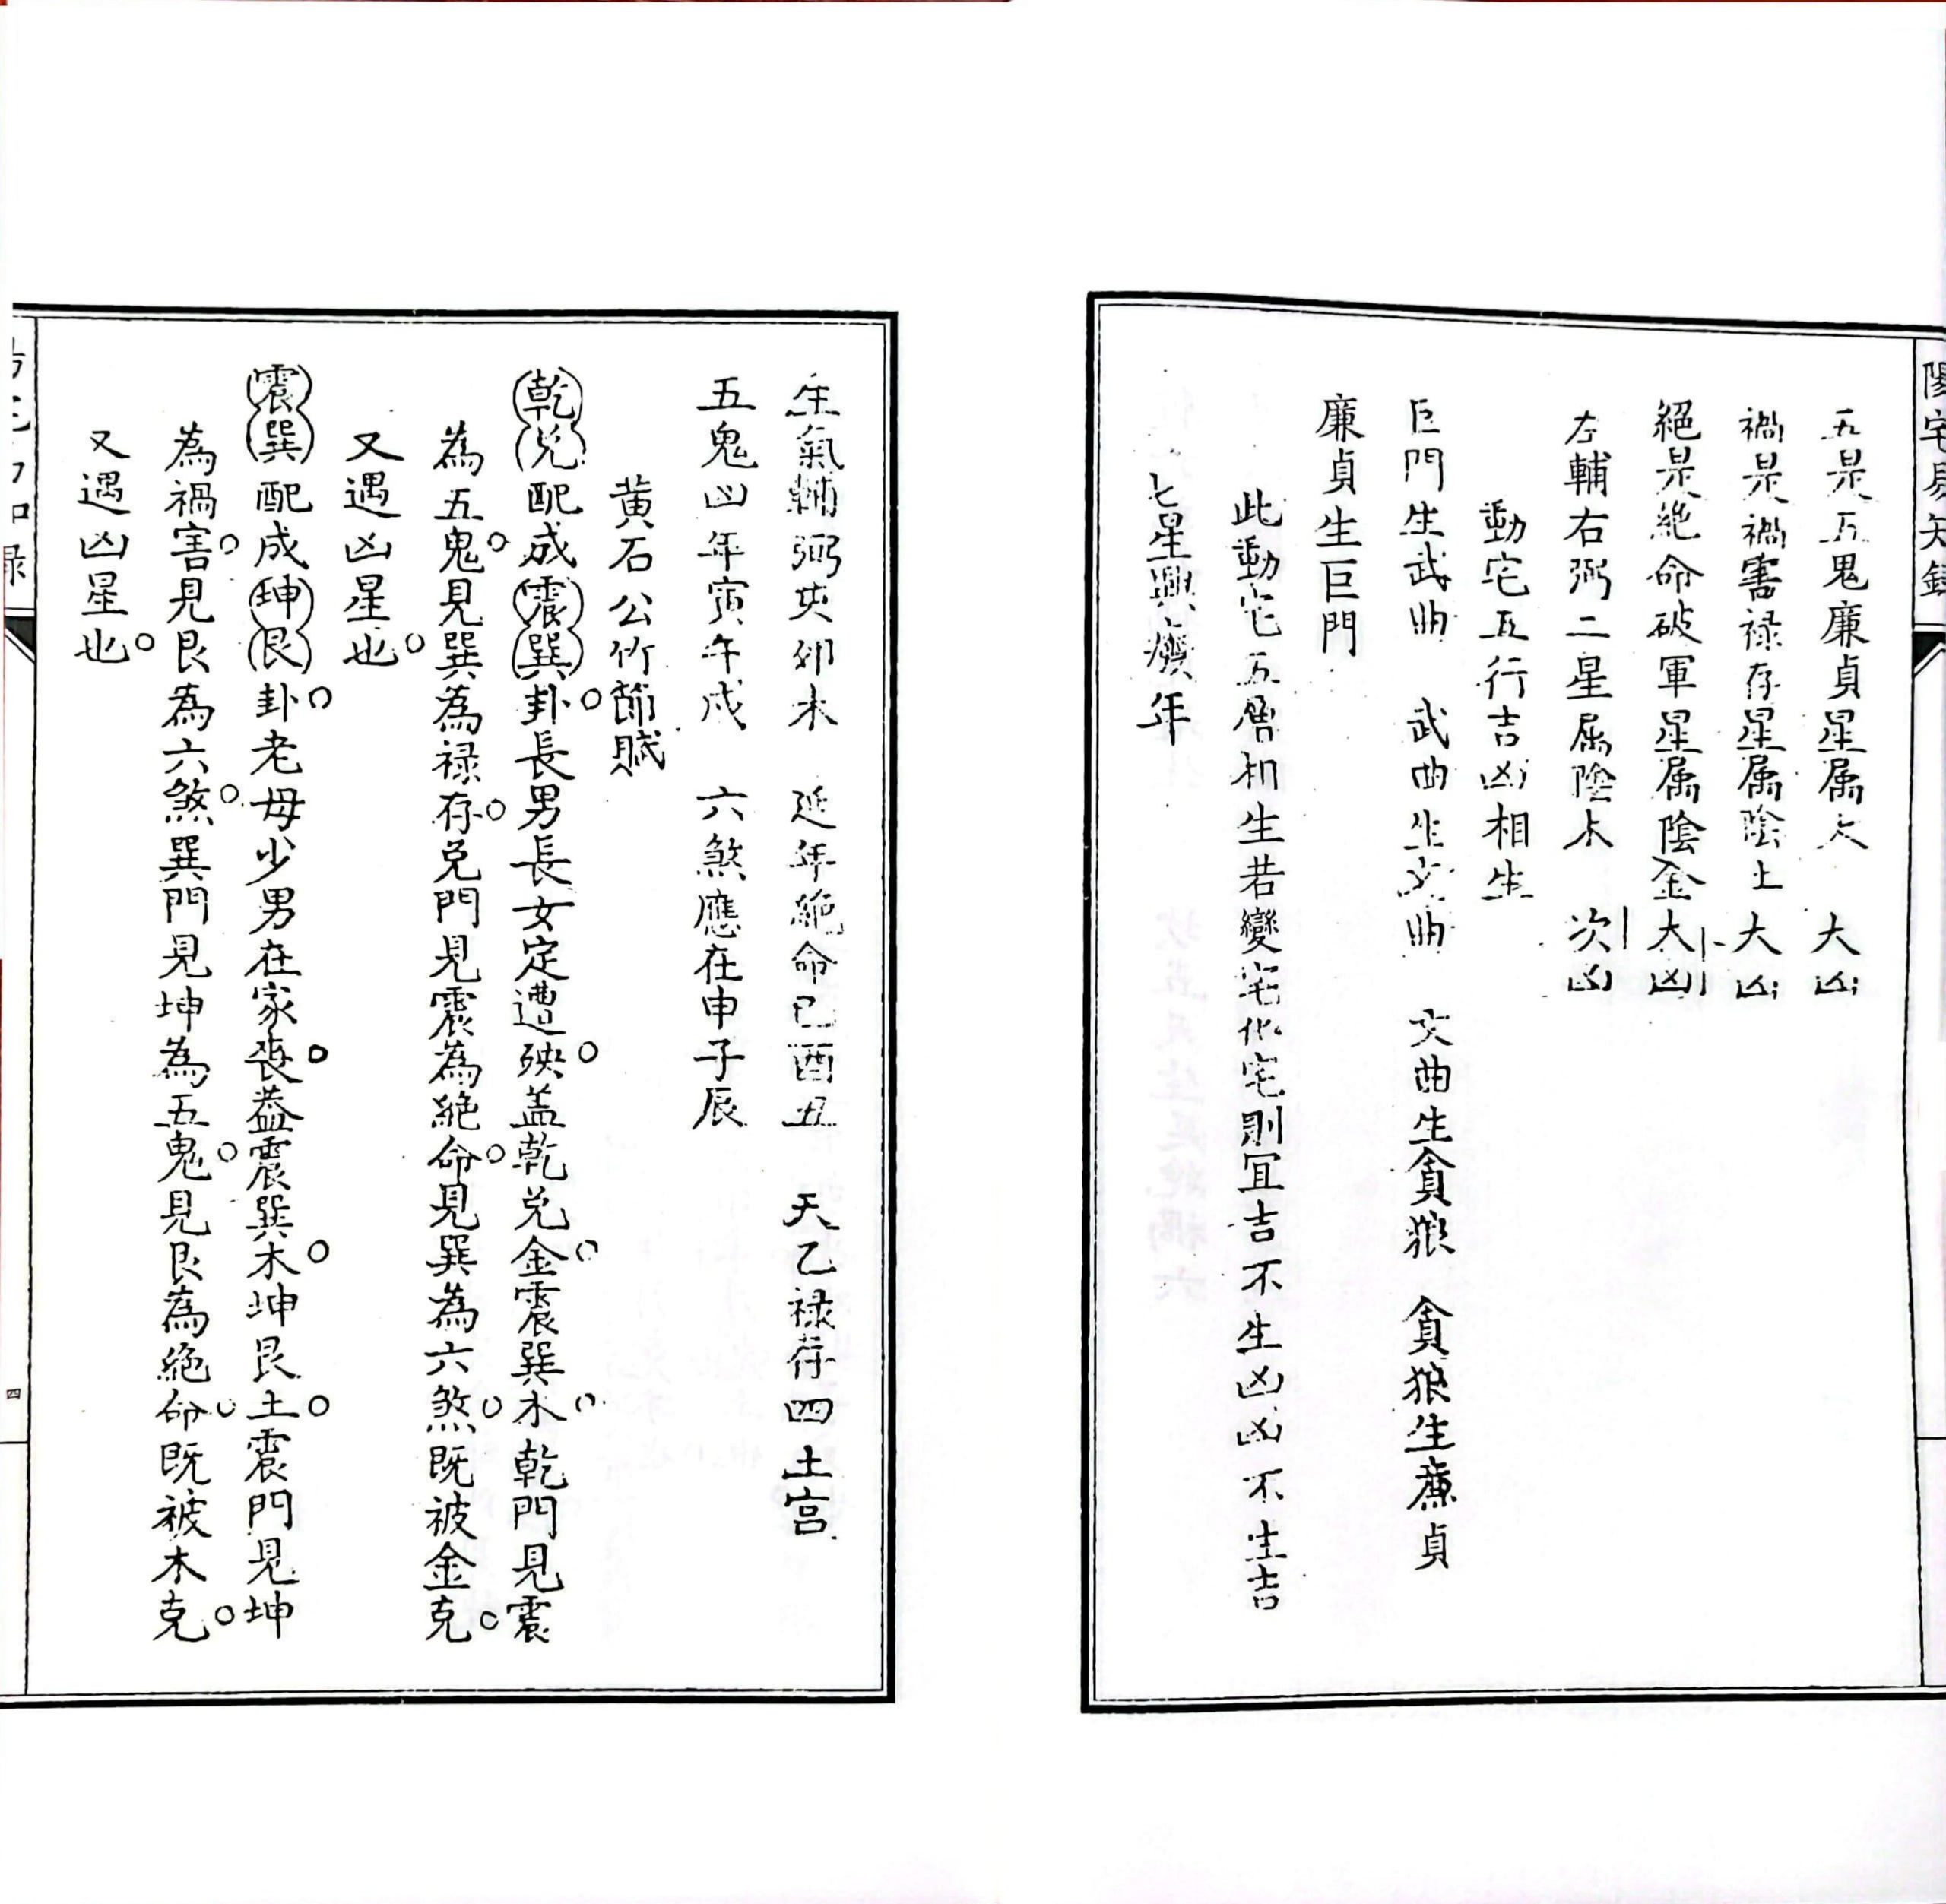 五是五鬼廉貞星属火　大凶
禍是禍害禄存星属陰土　大凶
絕是絕命破軍星属陰金　大凶
左輔右弼二星属陰木　次凶
動宅五行吉凶相生
巨門生武曲　武曲生文曲　文曲生貪狼　貪狼生廉貞
廉貞生巨門
此動宅五層相生若變宅化宅則宜吉不生凶凶不生吉
七星興廢年
生氣輔弼亥夘未　延年絕命巳酉丑　天乙禄存四土宫
五鬼凶年寅午戌　六煞應在申子辰
黄石公竹節賦
乾兌配成震巽卦長男長女定遭殃盖乾兌金震巽木乾門見震
為五鬼見巽為禄存兌門見震為絕命見巽為六煞既被金克
又遇凶星也
震巽配成坤艮卦老母少男在家喪葢震巽木坤艮土震門見坤
為禍害見艮為六煞巽門見坤為五鬼見艮為絕命既被木克
又遇凶星也
四